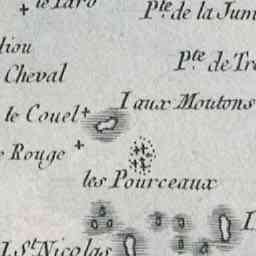 le Taro
Pte. de la Jum
diou
Cheval
Pte. de Tre
le Couel
I aux Moutons
Rouge
les Pourceaux
I. St. Nicolas
I